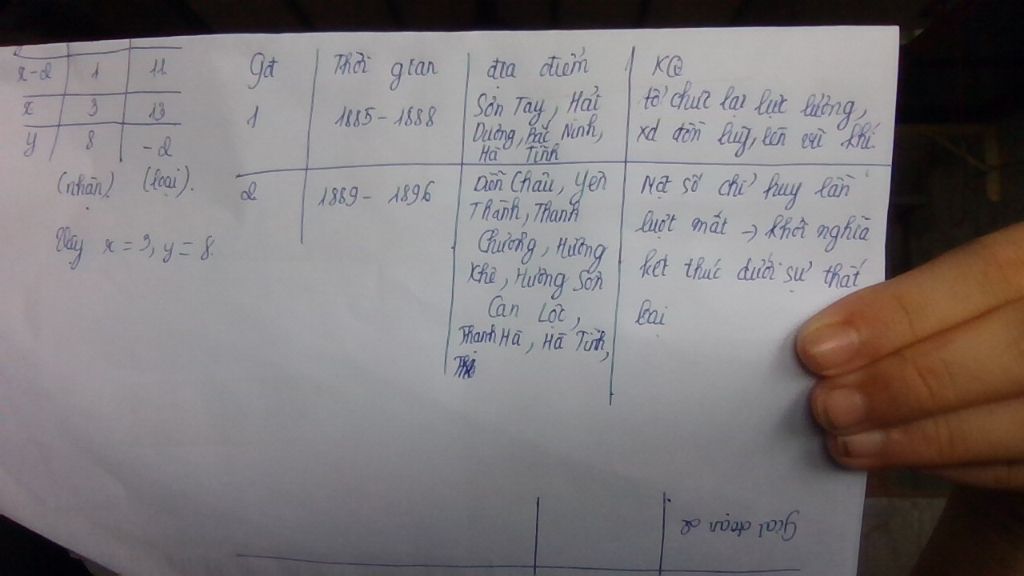 x-2 1 11
x 3 13
y 8 -2
(nhận) (loại).
Vậy x = 3, y = 8.
Gđ Thời gian địa điểm KQ
1 1885 - 1888
Sơn Tay, Hải
Dương, Bắc Ninh,
Hà Tĩnh
tổ chức lại lực lượng,
xd đồn luỹ, lên vũ khí.
2 1889 - 1896
Diễn Châu, Yên
Thành, Thanh
Chương, Hương
Khê, Hương Sơn
Can Lộc,
Thanh Hà, Hà Tĩnh,
Một số chỉ huy lần
lượt mất → khởi nghĩa
kết thúc dưới sự thất
bại
giai đoạn 2